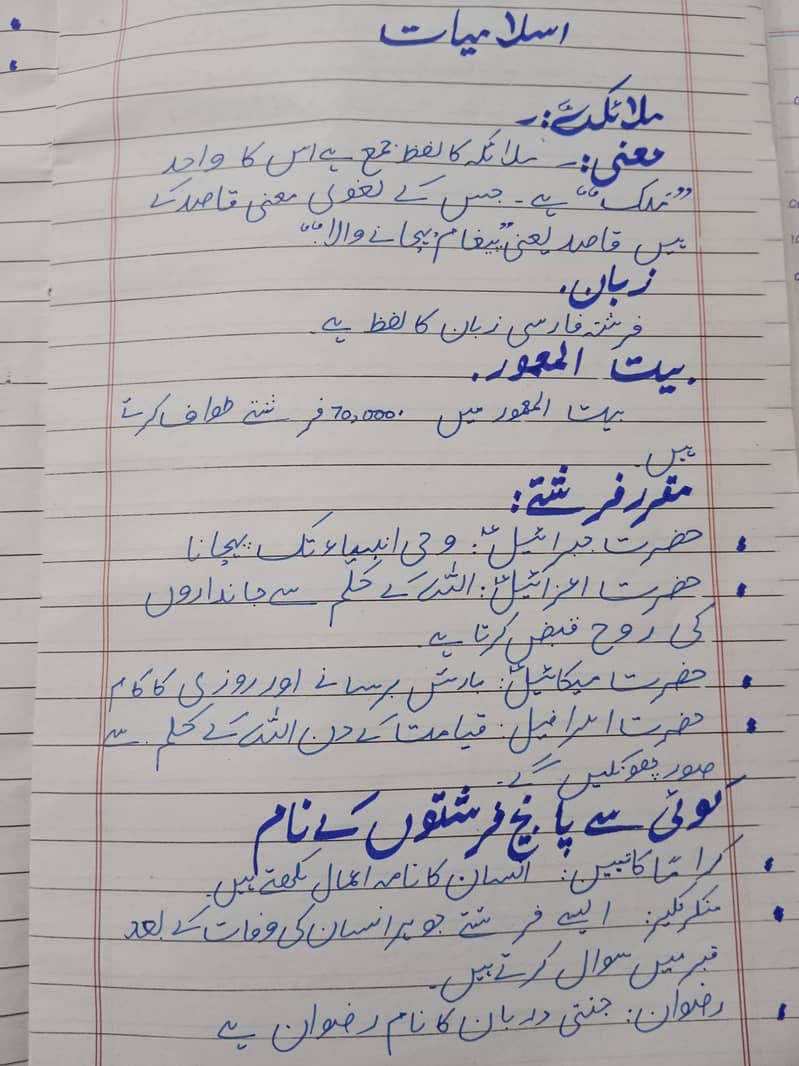 اسلامیات
ملائکہ:-
معنی:- ملائکہ کا لفظ جمع ہے اس کا واحد
”ملک“ ہے۔ جس کے لغوی معنی قاصد کے
ہیں قاصد یعنی ”پیغام پہچانے والا“۔
زبان.
فرشتہ فارسی زبان کا لفظ ہے۔
بیت المعمور.
بیت المعمور میں 70,000 فرشتے طواف کرتے
ہیں۔
مقرر فرشتے:
• حضرت جبرائیلؑ: وحی انبیاء تک پہچانا
• حضرت اعزائیلؑ: اللہ کے حکم سے جانداروں
کی روح قبض کرتا ہے۔
• حضرت میکائیلؑ: بارش برسانے اور روزی کا کام
• حضرت اسرافیل: قیامت کے دن اللہ کے حکم سے
صور پھونکیں گے۔
کوئی سے پانچ فرشتوں کے نام
• کراماً کاتبین: انسان کا نامہ اعمال لکھتے ہیں۔
• منکر نکیر: ایسے فرشتے جو ہر انسان کی وفات کے بعد
قبر میں سوال کرتے ہیں۔
• رضوان: جنتی دربان کا نام رضوان ہے